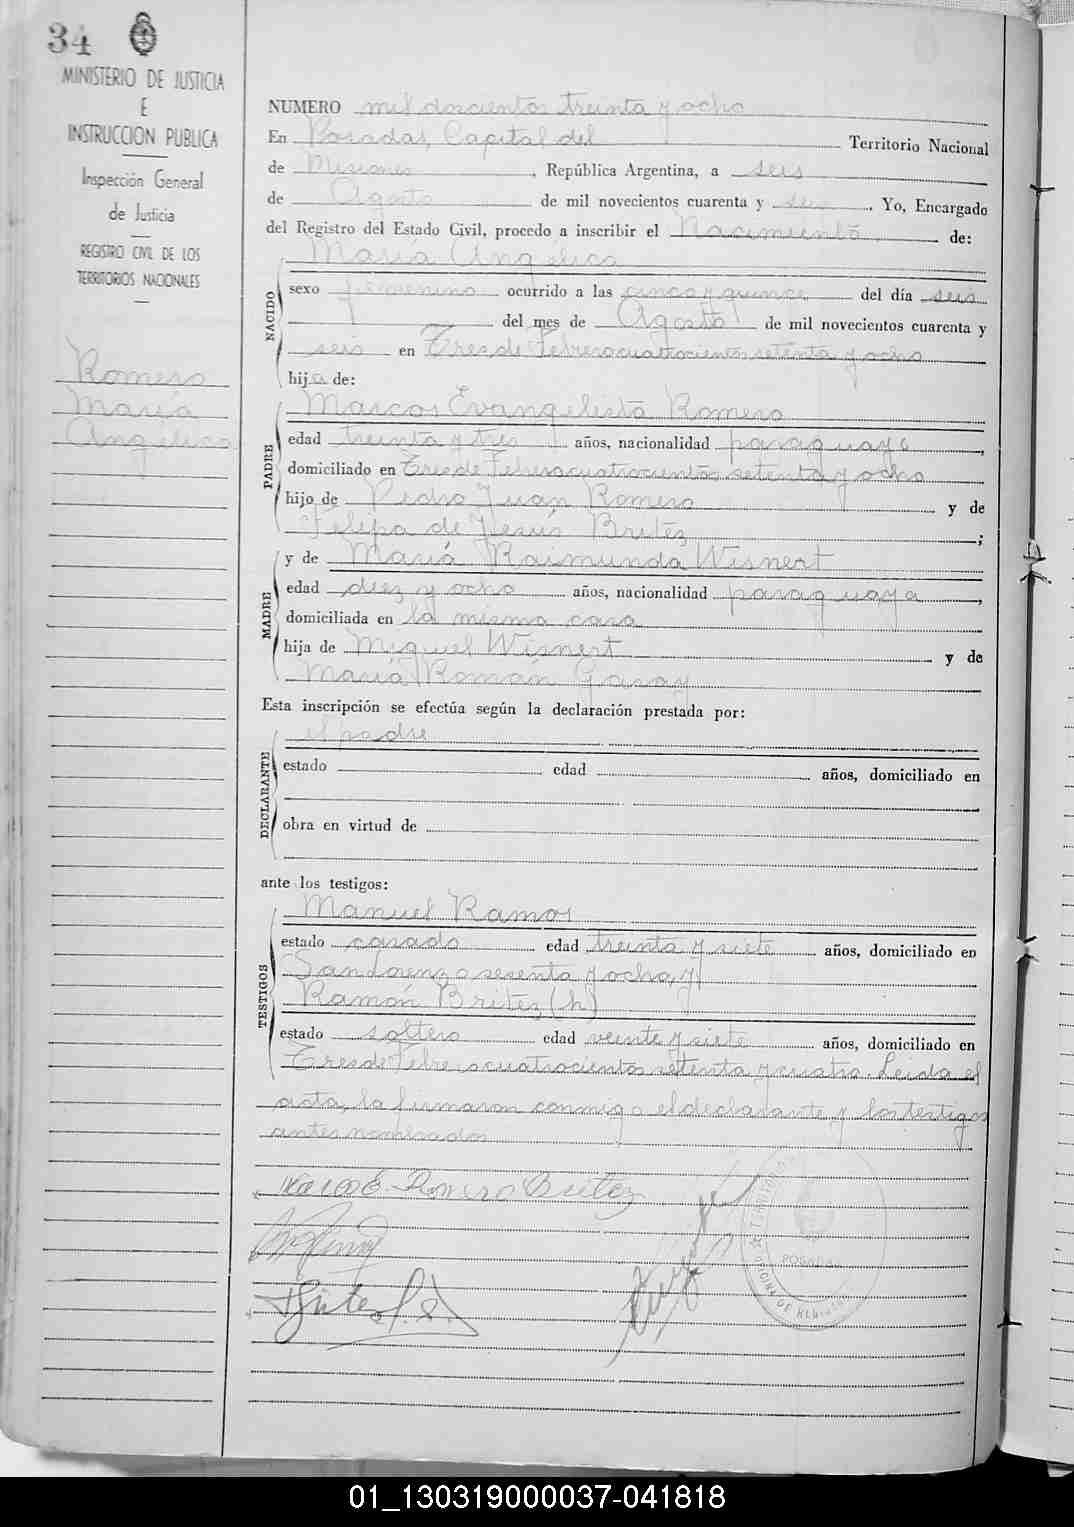 34
MINISTERIO DE JUSTICIA
E
INSTRUCCION PUBLICA
Inspección General
de Justicia
REGISTRO CIVIL DE LOS
TERRITORIOS NACIONALES
Romero
María
Angélica
NUMERO mil doscientos treinta y ocho
En Posadas, Capital del Territorio Nacional
de Misiones, República Argentina, a seis
de Agosto de mil novecientos cuarenta y seis. Yo, Encargado
del Registro del Estado Civil, procedo a inscribir el Nacimiento de:
María Angélica
NACIDO
sexo femenino ocurrido a las cinco y quince del día seis
del mes de Agosto de mil novecientos cuarenta y
seis en Tres de Febrero cuatrocientos setenta y ocho
hija de:
PADRE
Marcos Evangelista Romero
edad treinta y tres años, nacionalidad paraguayo,
domiciliado en Tres de Febrero cuatrocientos setenta y ocho
hijo de Pedro Juan Romero y de
Felipa de Jesús Britez;
MADRE
y de María Raimunda Wisnert
edad diez y ocho años, nacionalidad paraguaya,
domiciliada en la misma casa
hija de Miguel Wisnert y de
María Román Garay
Esta inscripción se efectúa según la declaración prestada por:
DECLARANTE
el padre
estado edad años, domiciliado en
obra en virtud de
ante los testigos:
TESTIGOS
Manuel Ramos
estado casado edad treinta y siete años, domiciliado en
San Lorenzo sesenta y ocho, y
Ramón Britez (h)
estado soltero edad veinte y siete años, domiciliado en
Tres de Febrero cuatrocientos setenta y cuatro. Leida el
acta, la firmaron conmigo el declarante y los testigos
antes nombrados
Marcos E. Romero Britez
POSADAS
OFICINA DE REGISTRO
01_130319000037-041818